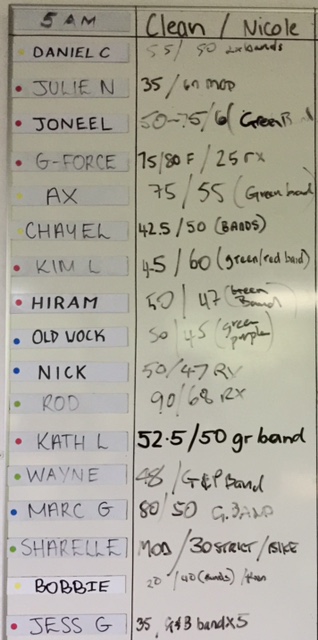 5 AM Clean / Nicole
DANIEL C 55/ 50 2xbands
JULIE N 35/ 60 MOD
JONEEL 50-75/61 Green B
G-FORCE 75/80 F / 25 rx
AX 75/55 (Green band)
CHAYEL 42.5/50 (BANDS)
KIM L 45/60 (green/red band)
HIRAM 50/47 (Green Band)
OLD VOCK 50/45 (green purple)
NICK 50/47 RX
ROD 90/68 RX
KATH L 52.5/50 gr band
WAYNE 48/G&P Band
MARC G 80/50 G.BAND
SHARELLE MOD/30STRICT/BIKE
BOBBIE 20 /40 (Bands) /
JESS G 35, G&B bandx5